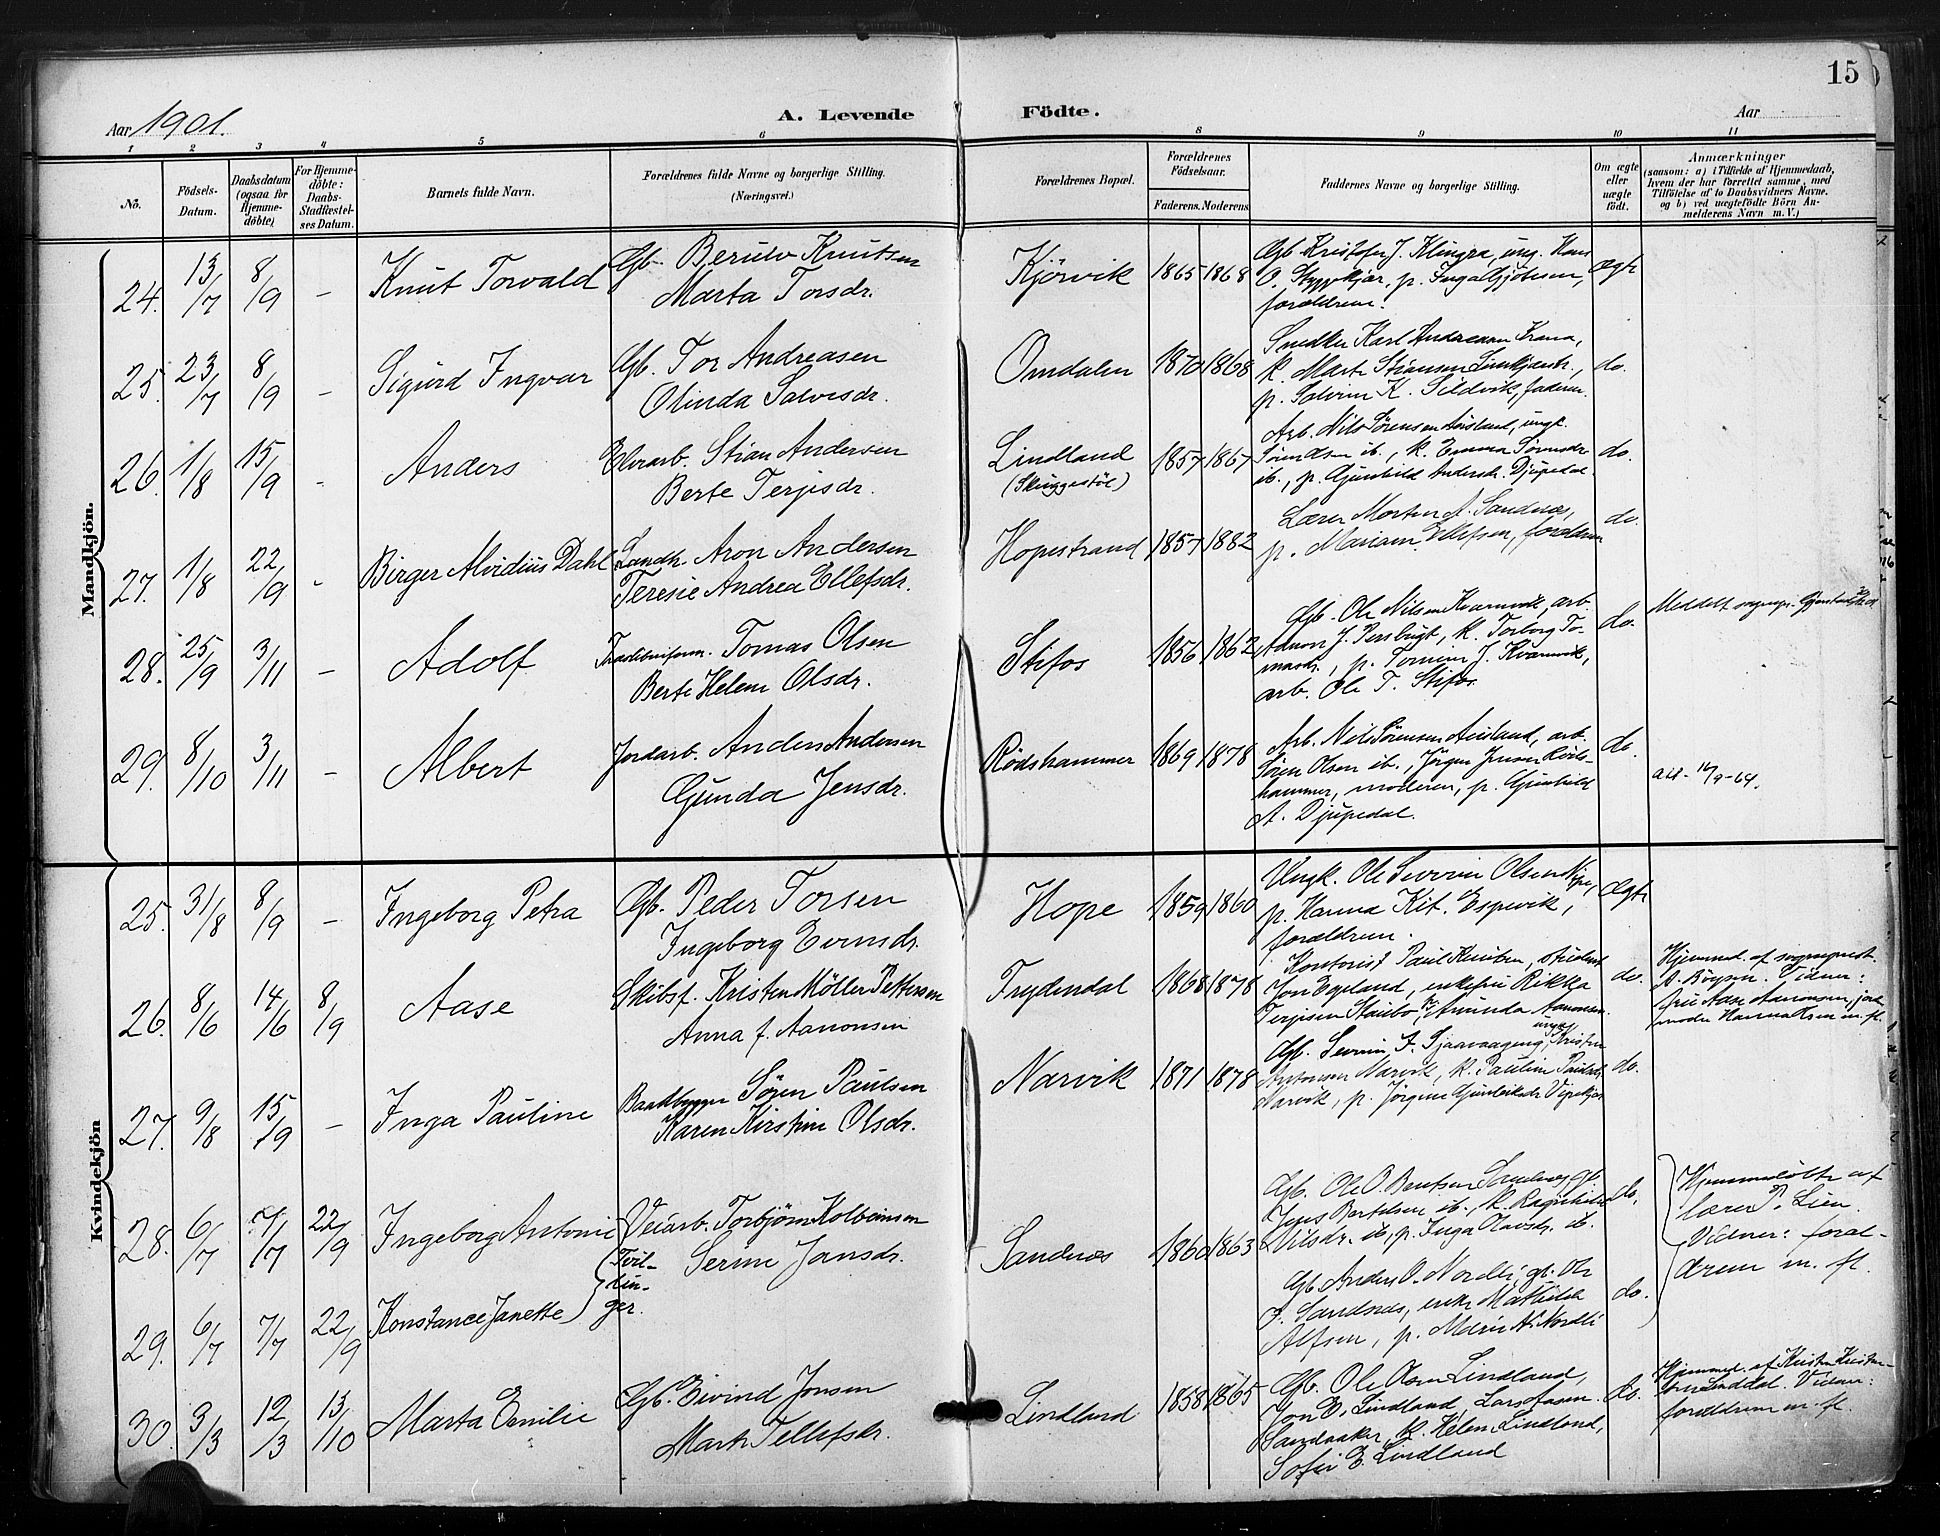 15
Aar 1901.
A. Levende Födte.
Aar
1 2 3 4 5 6 8 9 10 11
No.
Födsels-Datum.
Daabsdatum (ogsaa for Hjemme-döbte)
For Hjemme-döbte: Daabs-Stadfæstel-ses Datum.
Barnets fulde Navn.
Forældrenes fulde Navne og borgerlige Stilling.
(Næringsvei.)
Forældrenes Bopæl.
Forældrenes Födselsaar.
Faderens. Moderens
Faddernes Navne og borgerlige Stilling.
Om ægte eller uægte födt.
Anmærkninger
(saasom: a) i Tilfælde af Hjemmedaab,
hvem der har forrettet samme, med
Tilföielse af to Daabsvidners Navne.
og b) ved uægtefödte Börn An-
melderens Navn m. V.)
Mandkjön.
24. 13/7 8/9 – Knut Torvald
Gb. Berulv Knutsen
Marta Torsdr.
Kjörvik 1865 1868
Gb. Kristofer J. Klingra, ung. Hans
O. p. Inga
forældrene.
ægte
25. 23/7 8/9 – Sigurd Ingvar
Gb. Tor Andreasen
Olinda Salvesdr.
Omdalen 1870 1868
Snedker Karl Andreasen Krana,
k. Marte
p. Salvine K. Sildvik, faderen.
do.
26. 1/8 15/9 - Anders
Stian Andersen
Berte Terjesdr.
Lindland
1857 1867
Arb. Nils Sørensen Aasland, ungk.
Søren Olsen ib., k. Emma
ib., p. Gunhild Andersdr. Djupedal
do.
27. 1/8 22/9 - Birger Alvidius Dahl
Landh. Aron Andersen
Teresie Andrea Ellefsdr.
Hopestrand 1857 1882
Lærer Morten A. Sandnæs,
p. Mariam Ellefsen, forældrene
do.
28. 25/9 3/11 – Adolf
Tomas Olsen
Berte Helene Olsdr.
Stifos 1856 1862
Gb. Ole Nilsen Kvarnvik, arb.
J. k. Torborg To-
masdr., p. J. Kvarnvik,
arb. Ole T. Stifos
do.
Meddelt
29. 8/10 3/11 – Albert
Jordarb. Anders Andersen
Gunda Jensdr.
Rødshammer 1869 1878
Arb. Nils Sørensen Aasland, arb.
Søren Olsen ib., Jørgen Jensen Røds-
hammer, moderen, p. Gunhild
A. Djupedal.
do.
Kvindekjön
25. 31/8 8/9 – Ingeborg Petra
Gb. Peder Torsen
Ingeborg Evensdr.
Hope 1859 1860
Ungk. Ole Severin Olsen
p. Hanna Kit. Espevik,
forældrene.
ægte
26. 8/6 14/6 8/9 Aase
Skibsf. Kristen Möller Pettersen
Anna f. Aanonsen
Frydendal 1868 1878
Kontorist Paul Knutsen, student
Jon Egeland, enkefru Rikka
Terjesen Staubo, Amunda Aanonsen.
do.
Hjemmed. af sogneprest
Vidner:
fru Aase Aanonsen, jord-
moder Hanna m. fl.
27. 9/8 15/9 – Inga Pauline
Baadbygger Sören Paulsen
Karen Kirstine Olsdr.
Narvik 1871 1878
Gb. Severin F. ungk. Kristen
Antonsen Narvik, k. Pauline
Narvik, p. Jörgine
do.
28. 6/7 7/7 22/9 Ingeborg Antonie
Veiarb. Torbjörn Kolbeinsen
Serine Jansdr.
(Tvil-
lin-
ger.
Sandnæs 1860 1863
Gb. Ole O. Sandnæs, gb.
Jens Bertelsen ib., k. Ragnhild
Nilsdr. ib, p. Inga Olavsdr. ib.
do.
Hjemmedöbte af
lærer P. Lien.
Vidner: foræl-
drene m. fl.
29. 6/7 7/7 22/9 Konstance Janette
Gb. Anders O. Nordli, gb. Ole
J. Sandnæs, enke Mathilde
Alfsen, p. Marie A. Nordli
do.
30. 3/3 12/3 13/10 Marta Emilie
Gb. Eivind Jonsen
Marte Tellefsdr.
Lindland 1858 1865
Gb. Ole Olsen Lindland,
Jon E. Lindland,
Sandaaker, k. Helene Lindland,
Sofie E. Lindland
do.
Hjemmed. af Kristen Kristen-
Vidner:
forældrene m. fl.